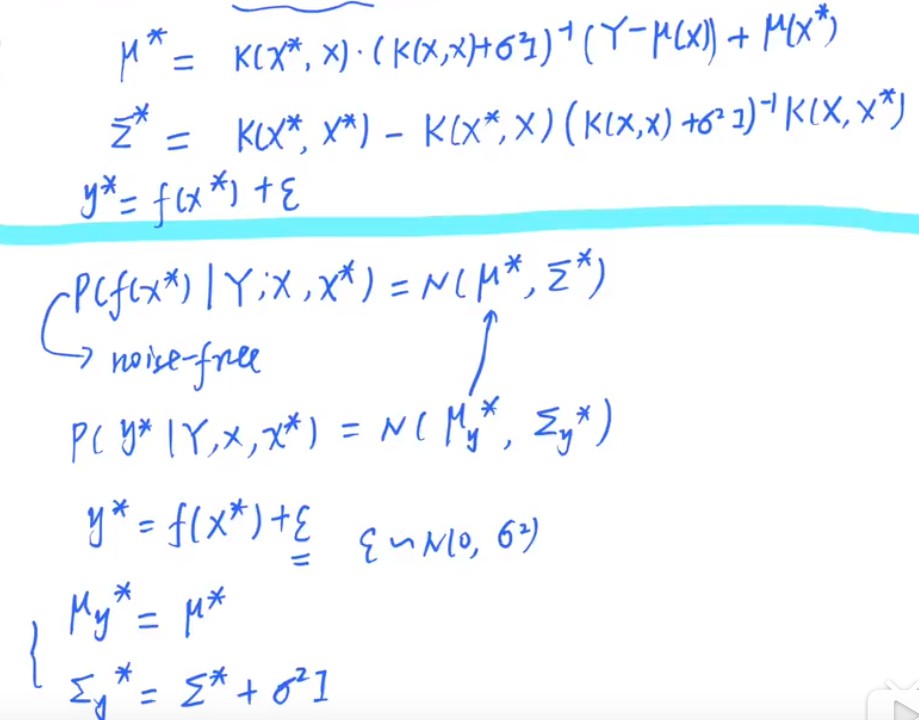 μ* = K(x*, x)·(K(x,x)+σ²I)⁻¹(Y-μ(x)) + μ(x*)
Σ* = K(x*, x*) - K(x*, x)(K(x,x)+σ²I)⁻¹K(x, x*)
y* = f(x*) + ε
P(f(x*) | Y; X, x*) = N(μ*, Σ*)
→ noise-free
P(y* | Y, x, x*) = N(μ_y*, Σ_y*)
y* = f(x*) + ε ε ~ N(0, σ²)
{ μ_y* = μ*
Σ_y* = Σ* + σ²I